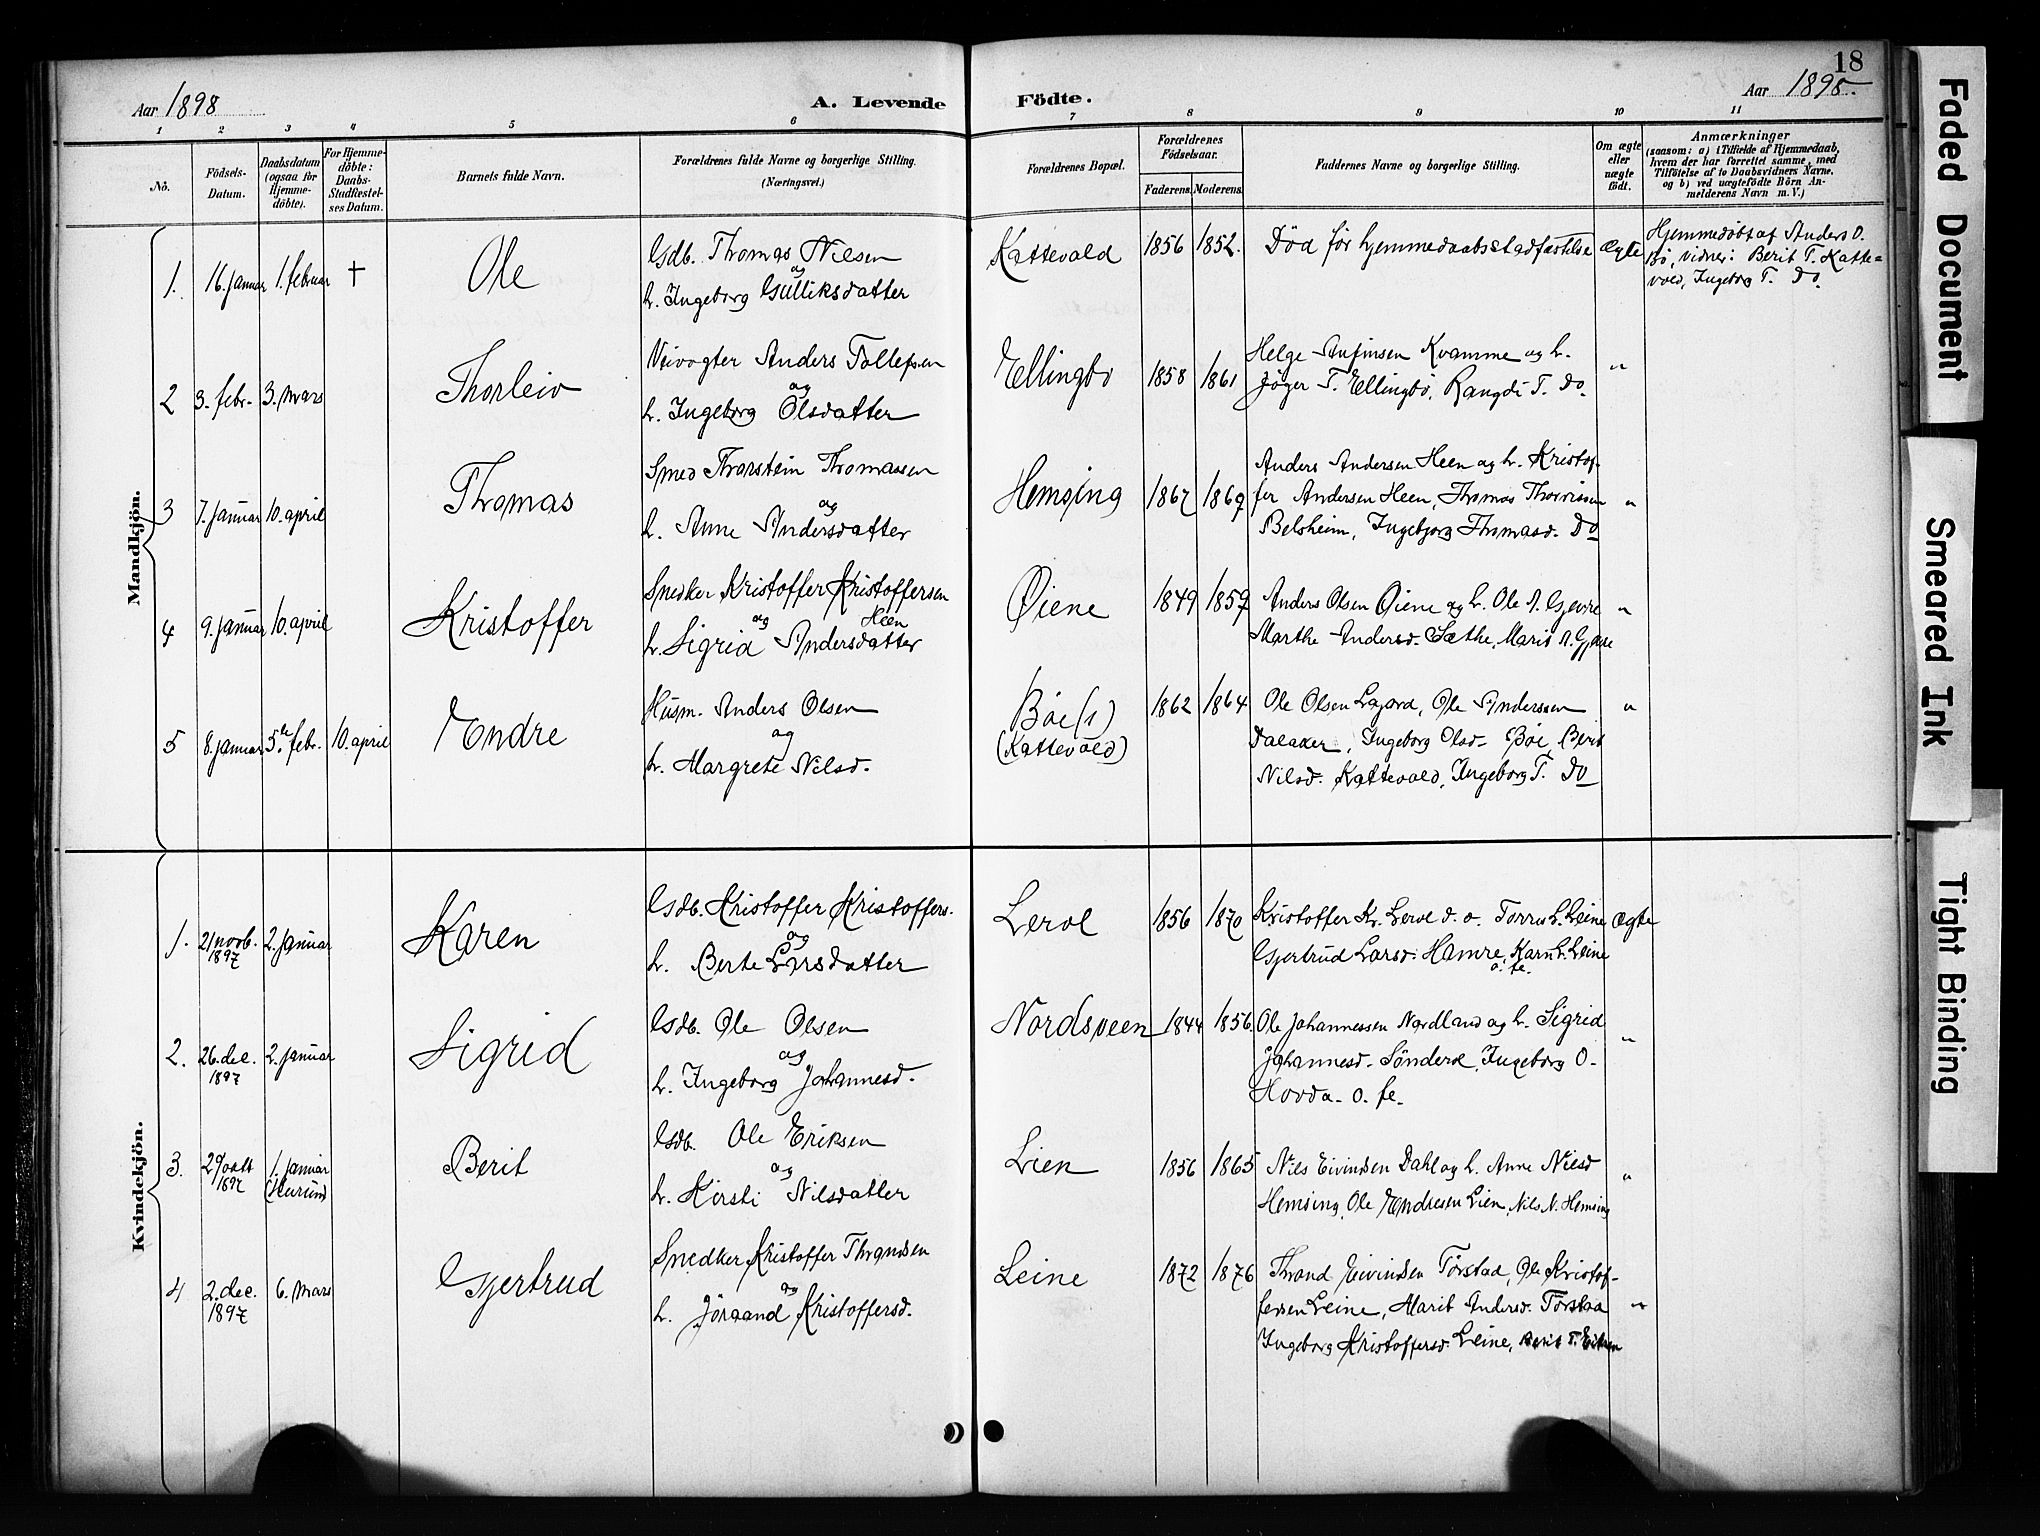 18
Aar 1898
A. Levende
Födte.
Aar 1898.
1 2 3 4 5 6 7 8 9 10 11
No.
Födsels-
Datum.
Daabsdatum
(ogsaa for
Hjemme-
döbte).
For Hjemme-
döbte:
Daabs-
Stadfæstel-
ses Datum.
Barnets fulde Navn.
Forældrenes fulde Navne og borgerlige Stilling.
(Næringsvei.)
Forældrenes Bopæl.
Forældrenes
Födselsaar.
Faderens. Moderens.
Faddernes Navne og borgerlige Stilling.
Om ægte
eller
uægte
födt.
Anmærkninger
(saasom: a) i Tilfælde af Hjemmedaab,
hvem der har forrettet samme, med
Tilföielse af to Daabsvidners Navne,
og b) ved uægtefödte Börn An-
melderens Navn m. V.)
Mandkjön.
1. 16. januar 1. februar † Ole
Gsdb. Thomas Nilsen
og
h. Ingeborg Gulliksdatter
Kattevold 1856 1852. Död för hjemmedaabsstadfæstelse ægte
Hjemmedöbt af Anders O.
Bö, vidner: Berit T. Katte-
vold, Ingeborg T. Do.
2 3. febr. 3. mars Thorleiv
Veivogter Anders Tollefsen
og
h. Ingeborg Olsdatter
Ellingbö 1858 1861
Helge Anfinsen Kvamme og h.
Jöger T. Ellingbö, Rangdi T. Do. "
3 7. januar 10. april Thomas
Smed Thorstein Thomassen
og
h. Anne Andersdatter
Hemsing 1867 1869
Anders Andersen Heen og h. Kristof-
fer Andersen Heen, Thomas
Belsheim, Ingebjorg Thomasd. Do "
4 9. januar 10. april Kristoffer
Snedker Kristoffer Kristoffersen
og Heen
h. Sigrid Andersdatter
Øiene 1849 1859
Anders Olsen Øiene og h. Ole A. "
Marthe Andersd. Sæthe, Marit A.
5 8. januar 5te febr. 10. april Endre
Husm. Anders Olsen
og
h. Margrete Nilsd.
Böe (1)
(Kattevold)
1862 1864
Ole Olsen, Ole Anderssen "
Dalaker, Ingeborg Olsd. Böe, Berit
Nilsd. Kattevold, Ingeborg T. Do
Kvindekjön.
1. 21 novb.
1897
2. januar Karen
Gsdb. Kristoffer Kristoffers.
og
h. Berte Larsdatter
Lerol 1856 1870
Kristoffer Kr. Lerol d. o. L. Leine ægte
Gjertrud Larsd. Hamre, Kari L. Leine
o. fe.
2. 26. dec.
1897
2. januar Sigrid
Gsdb. Ole Olsen
og
h. Ingeborg Johannesd.
Nordsveen 1844 1856
Ole Johannessen Nordland og h. Sigrid
Johannesd. Sönderol, Ingeborg O. "
Hovda o. fe.
3. 29 oktt
1897
1. januar
(Hurum)
Berit
Gsdb. Ole Eriksen
og
h. Kirsti Nilsdatter
Lien 1856 1865
Nils Eivindsen Dahl og h. Anne Nilsd "
Hemsing, Ole Endresen Lien, Nils N. Hemsing
4 2. dec.
1897
6. mars Gjertrud
Snedker Kristoffer Throndsen
og
h. Jöraand Kristoffersd.
Leine 1872 1876
Thrond Eivindsen Törstad, Ole Kristof-
fersen Leine, Marit Andersd. Törstad "
Ingeborg Kristoffersd. Leine, Berit T.
Faded Document
Smeared Ink
Tight Binding